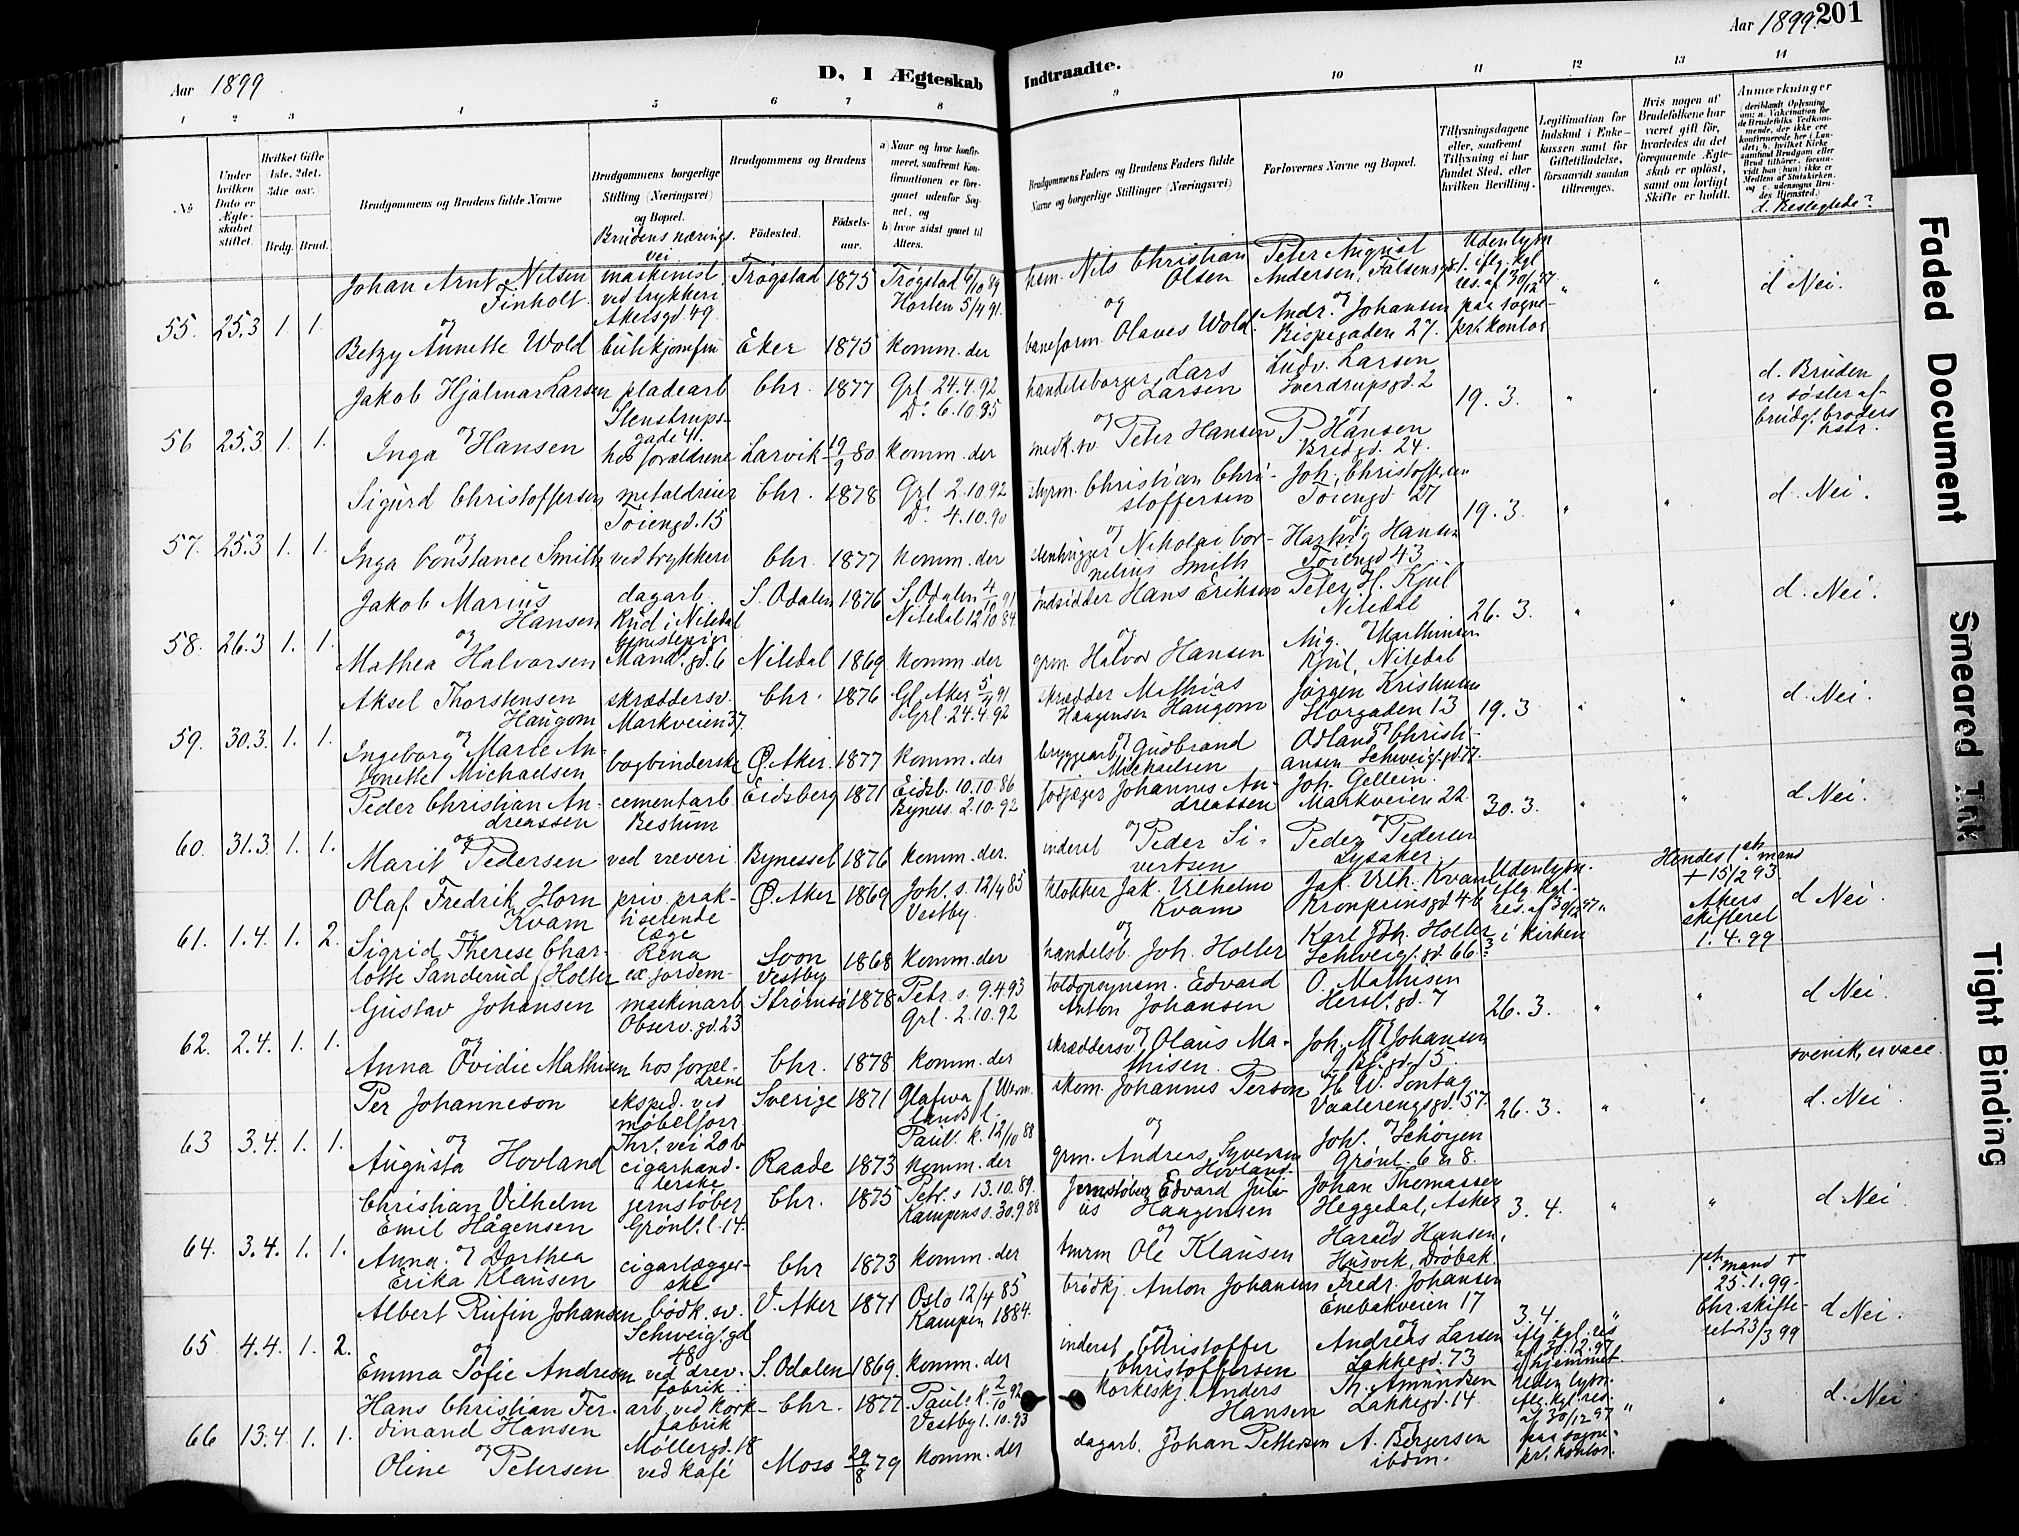 Aar 1899
D, 1 Ægteskab
Indtraadte.
Aar 1899. 201
1 2 3 4 5 6 7 8 9 10 11 12 13 14
No
Under hvilken Dato er Ægteskabet stiftet.
Hvilket Gifte 1ste, 2det, 3die osv.
Brdg. Brud.
Brudgommens og Brudens fulde Navne
Brudgommens borgerlige Stilling (Næringsvei) og Bopæl.
Brudens næringsvei
Brudgommens og Brudens
Fødested.
Fødsels-aar.
a) Naar og hvor konfirmeret, saafremt Konfirmationen er foregaaet udenfor Sognet, og
b) hvor sidst gaaet til Alters.
Brudgommens Faders og Brudens Faders fulde Navne og borgerlige Stillinger (Næringsvei)
Forlovernes Navne og Bopæl.
Tillysningsdagene eller, saafremt Tillysning ei har fundet Sted, efter hvilken Bevilling.
Legitimation for Indskud i Enkekassen samt for Giftetilladelse, forsaavidt saadan tiltrænges.
Hvis nogen af Brudefolkene har været gift før, hvorledes da det foregaaende Ægteskab er opløst, samt om lovligt Skifte er holdt.
Anmærkninger
d. Beslegtede?
55. 25.3 1. 1.
Johan Arnt Nilsen Finholt
maskinist ved trykkeri Akersgd 49.
Trøgstad 1875 Trøgstad 6/10 89 Horten 5/4 91.
hsm. Nils Christian Olsen
Peter August Andersen, Falsensgd. 1.
Udenlysn iflg. kgl res. af 30/12 97 paa sogneprl.kontor
" " d Nei.
og
Betzy Annette Wold butikjomfru Eker 1875 komm. der
baneform. Olaves Wold.
Andr. Johansen Bispegaden 27.
56 25.3 1. 1.
Jakob Hjalmar Larsen pladearb Stenstrupsgade 41.
Chr. 1877 Grl. 24.4.92 Do 6.10.95
handelsborger Lars Larsen
Ludv. Larsen Sverdrupsgd. 2
19.3. " "
d. Bruden er søster af brudg. broders hstr.
og
Inga Hansen hos forældrene Larvik 19/9 80 komm. der
medk.sv. Peter Hansen
P Hansen Bredgd. 24.
57. 25.3 1. 1.
Sigurd Christoffersen metaldreier Tøiengd. 15
Chr. 1878 Grl 2.10.92 Do 4.10.90
styrm. Christian Christoffersen
Joh. Christoffersen Tøiengd 27
19.3. " " d. Nei.
og
Inga Constance Smith ved trykkeri Chr. 1877 komm. der
stenhugger Nikolai Cornelius Smith
Hartvig Hansen Tøiengd 43
58. 26.3 1. 1.
Jakob Marius Hansen dagarb. Rud i Nitedal
S. Odalen 1876 S. Odalen 4/10 91 Nitedal 12/10 84
Indsidder Hans Eriksen
Peter H. Kjul Nitedal
26.3. " " d. Nei.
og
Mathea Halvorsen tjenestepige Mand. gd. 6 Nitedal 1869 komm. der
grm. Halvor Hansen
Aug. Marthinsen Kjul, Nitedal
59. 30.3. 1. 1.
Aksel Thorstensen Haugom skræddersv. Markveien 37.
Chr. 1876 Gl. Aker 5/4 91 Grl. 24.4.92
skrædder Mathias Haagensen Haugom
Jørgen Kristensen Torgaden 13
19.3 " " d. Nei.
og
Ingeborg Marie Antonette Michaelsen bogbinderske Ø. Aker. 1877 komm. der
bryggearb. Gudbrand Michaelsen
Odland Christiansen Schweig.gd. 77.
60. 31.3 1. 1.
Peder Christian Andreassen cementarb Bestum
Eidsberg 1871 Eidsb. 10.10.86 Byness. 2.10.92
Johannes Andreassen
Joh. Gellein. Markveien 22
30.3. " " d Nei.
og
Marit Pedersen ved væveri Bynesset 1876 komm. der.
inderst Peder Sivertsen
Peder Pedersen Lysaker
61. 1.4. 1. 2.
Olaf Fredrik Horn Kvam priv. praktiserende læge Rena
Ø. Aker 1869 Joh.s. 12/4 85 Vestby.
klokker Jak. Vilhelm Kvam
Jak. Vilh. Kvam Kronprinsgd 4b
Udenlysn. iflg. kgl. res. af 30/12 97 i kirken
"
Hendes 1ste mand + 15/2 93. Akers skifteret 1.4.99
d Nei.
og
Sigrid Therese Charlotte Sanderud f. Holter ex. jordem- Soon Vestby 1868 komm. der
handelsb. Joh. Holter
Karl Joh. Holter Schweig.gd. 66
62. 2.4. 1. 1.
Gustav Johansen maskinarb Observ.gd. 23
Strømsø 1878 Petr. s. 9.4.93 Grl. 2.10.92
toldopsynsm. Edvard Anton Johansen
O. Mathisen Hersl.gd. 7
26.3. " " d Nei.
og
Anna Ovidie Mathisen hos forældrene Chr. 1878 komm. der
skræddersv. Olaus Mathisen.
Joh. M. Johansen
63 3.4. 1. 1.
Per Johanneson eksped. ved møbelforr. Thr. vei 20b
Sverige 1871 Glafva f Wermlands l. Paul. k. 12/10 88
skom. Johannes Person
H W. Sontag Vaalerengsgd. 57.
26.3. " "
svensk, er vacc.
d. Nei.
og
Augusta Hovland cigarhandlerske Raade 1873 komm. der
grm. Andreas Syversen Hovland.
Joh. Schøyen Grønl. 6 a 8.
64. 3.4. 1. 1.
Christian Vilhelm Emil Hågensen jernstøber Grønl. l. 14.
Chr. 1875 Petr. s 13.10.89. Kampens s. 30.9.88
Jernstøber Edvard Julius Haagensen
Johan Thomassen Heggedal, Asker
3.4. " " d Nei
og
Anna Dorthea Erika Klausen cigarlæggerske Chr 1873 komm. der
Ole Klausen
Harald Hansen, Husvik, Drøbak
65 4.4. 1. 2.
Albert Rufin Johansen bødk.sv. Schweig.gd 48.
V. Aker 1871 Oslo 12/4 85 Kampen 1884.
brødkj. Anton Johansen
Fredr. Johansen Enebakveien 17
3.4. iflg. kgl. res af 30.12.97 i hjemmet
"
1ste mand + 25.1.99. Chr. skifteret 23/3 99
d Nei.
og
Emma Sofie Andresen ved drev. fabrik. S. Odalen 1869. komm. der
inderst Christoffer Christoffersen
Andreas Larsen Lakkegd. 73
66 13.4 1. 1.
Hans Christian Ferdinand Hansen arb. ved korkfabrik Møllergd. 18
Chr. 1877 Paul. k. 2/10 92 Vestby 1.10.93
korkeskj. Anders Hansen
Th. Amundsen Lakkegd. 14
Uden lysn. iflg. kgl. res. af 30/12 97 paa sogneprl. kontor.
" " d. Nei
og
Oline Petersen ved kafé Moss 29/8 79 komm. der
dagarb. Johan Pettersen
A. Børgersen ibdm.
Faded Document
Smeared Ink
Tight Binding